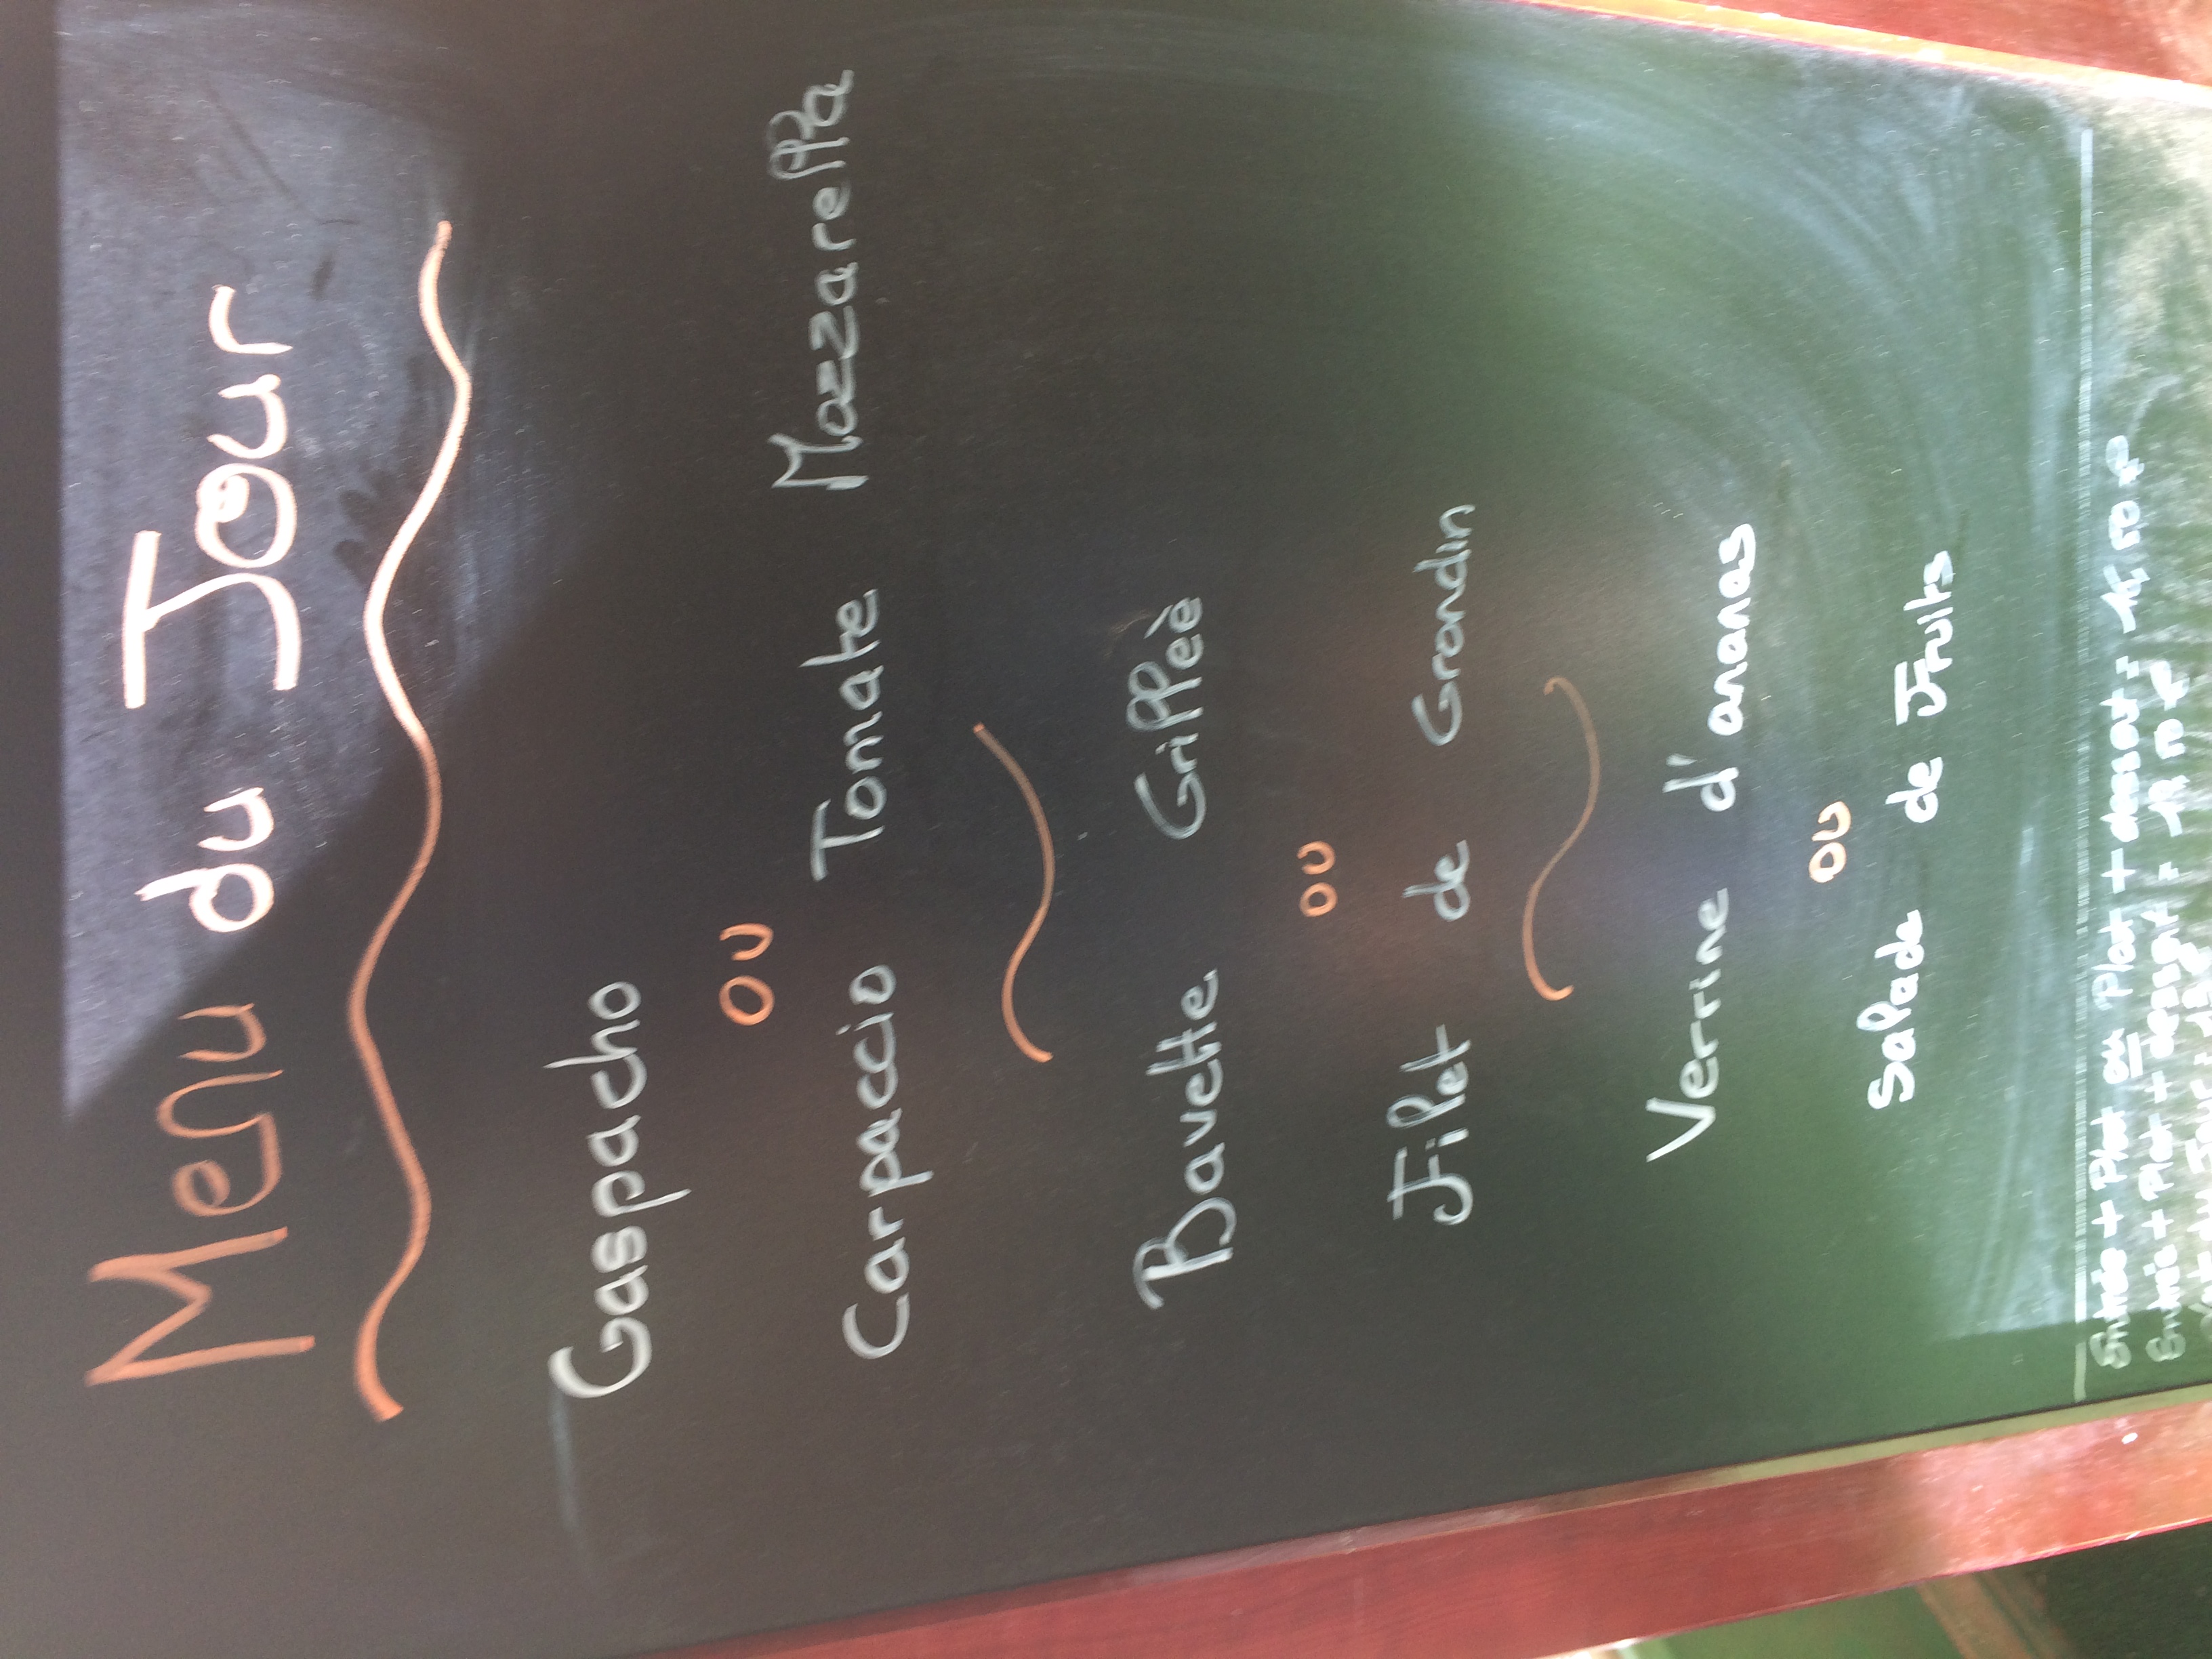 Menu du Jour
Gaspacho
ou
Carpaccio Tomate Mozzarella
Bavette Grilleè
ou
Filet de Grondin
Verrine d'ananas
ou
Salade de Fruits
Entrée + Plat ou Plat + dessert =
Entrée + Plat + dessert =